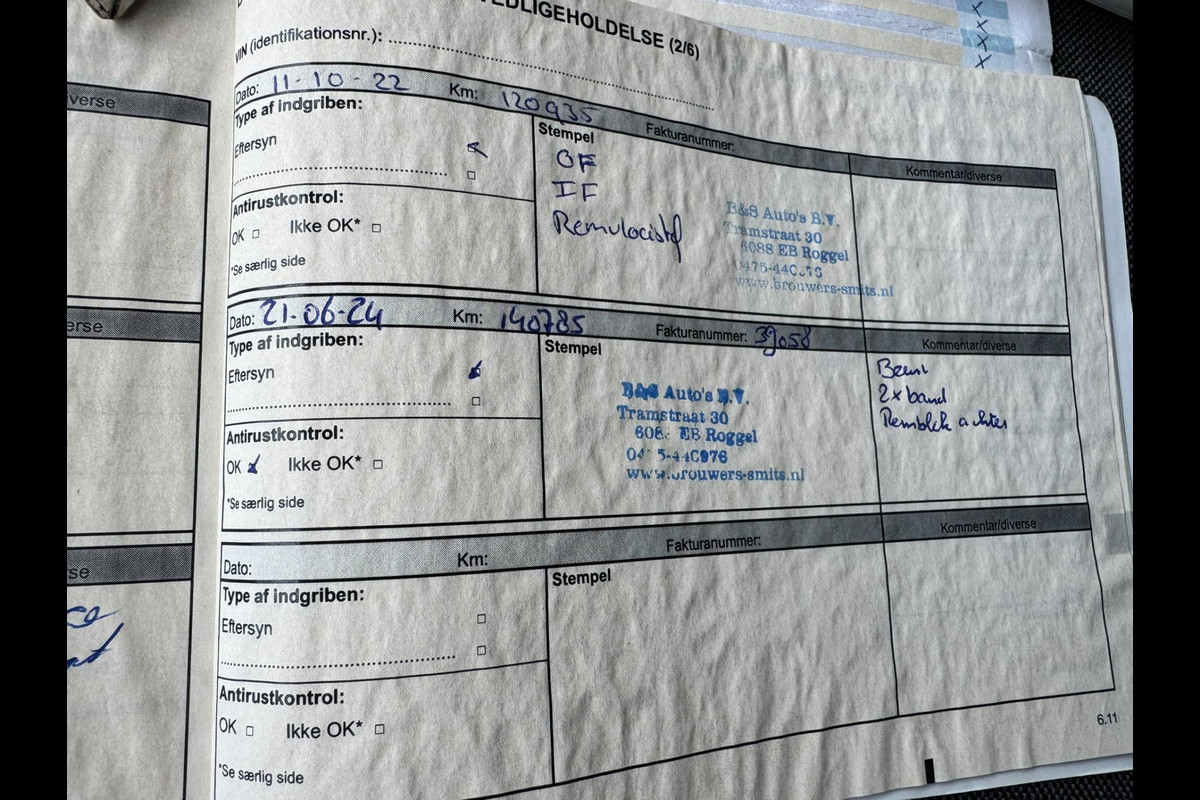 VEDLIGEHOLDELSE (2/6)
VIN (identifikationsnr.):
Dato: 11-10-22 Km: 120935 Fakturanummer:
Type af indgriben:
Eftersyn
Stempel
OF
IF
Antirustkontrol:
OK Ikke OK*
*Se særlig side
B&S Auto's B.V.
Tramstraat 30
6088 EB Roggel
www.brouwers-smits.nl
Kommentar/diverse
Dato: 21-06-24 Km: 140785 Fakturanummer: 39058
Type af indgriben:
Eftersyn
Antirustkontrol:
OK Ikke OK*
*Se særlig side
Stempel
B&S Auto's B.V.
Tramstraat 30
EB Roggel
www.brouwers-smits.nl
Kommentar/diverse
Beurt
2x band
Remblok achter
Dato: Km: Fakturanummer:
Type af indgriben:
Eftersyn
Antirustkontrol:
OK Ikke OK*
*Se særlig side
Stempel
Kommentar/diverse
6.11